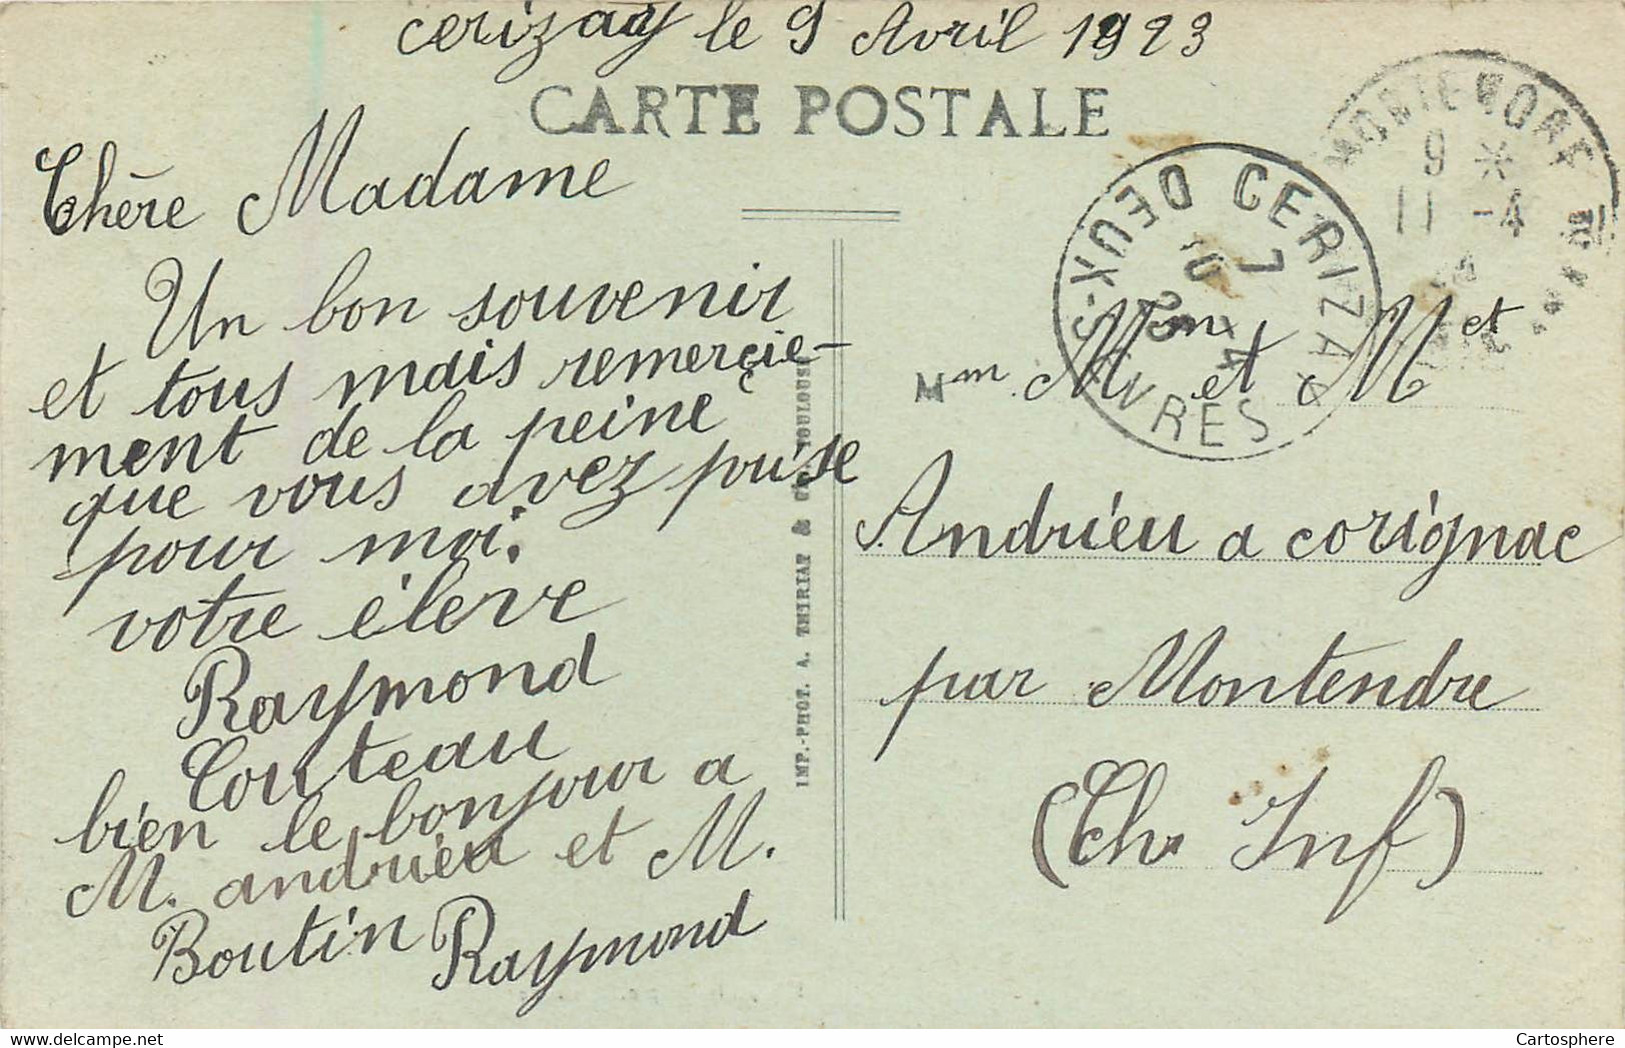 cerizay le 9 Avril 1923
CARTE POSTALE
Chère Madame
Un bon souvenir
et tous mais remerçie-
ment de la peine
que vous avez pui se
pour moi.
votre élève
Raymond
Couteau
bien le bonjour a
M. andrieu et M.
Boutin Raymond
IMP.-PHOT. A. THIRIAT & Cie, TOULOUSE
CERIZAY
DEUX-SÈVRES
7
10 -4
23
9 *
11 -4
M
mm Mm et Met
Andrieu a corignac
par Montendre
(Ch. Inf)
Cartosphere